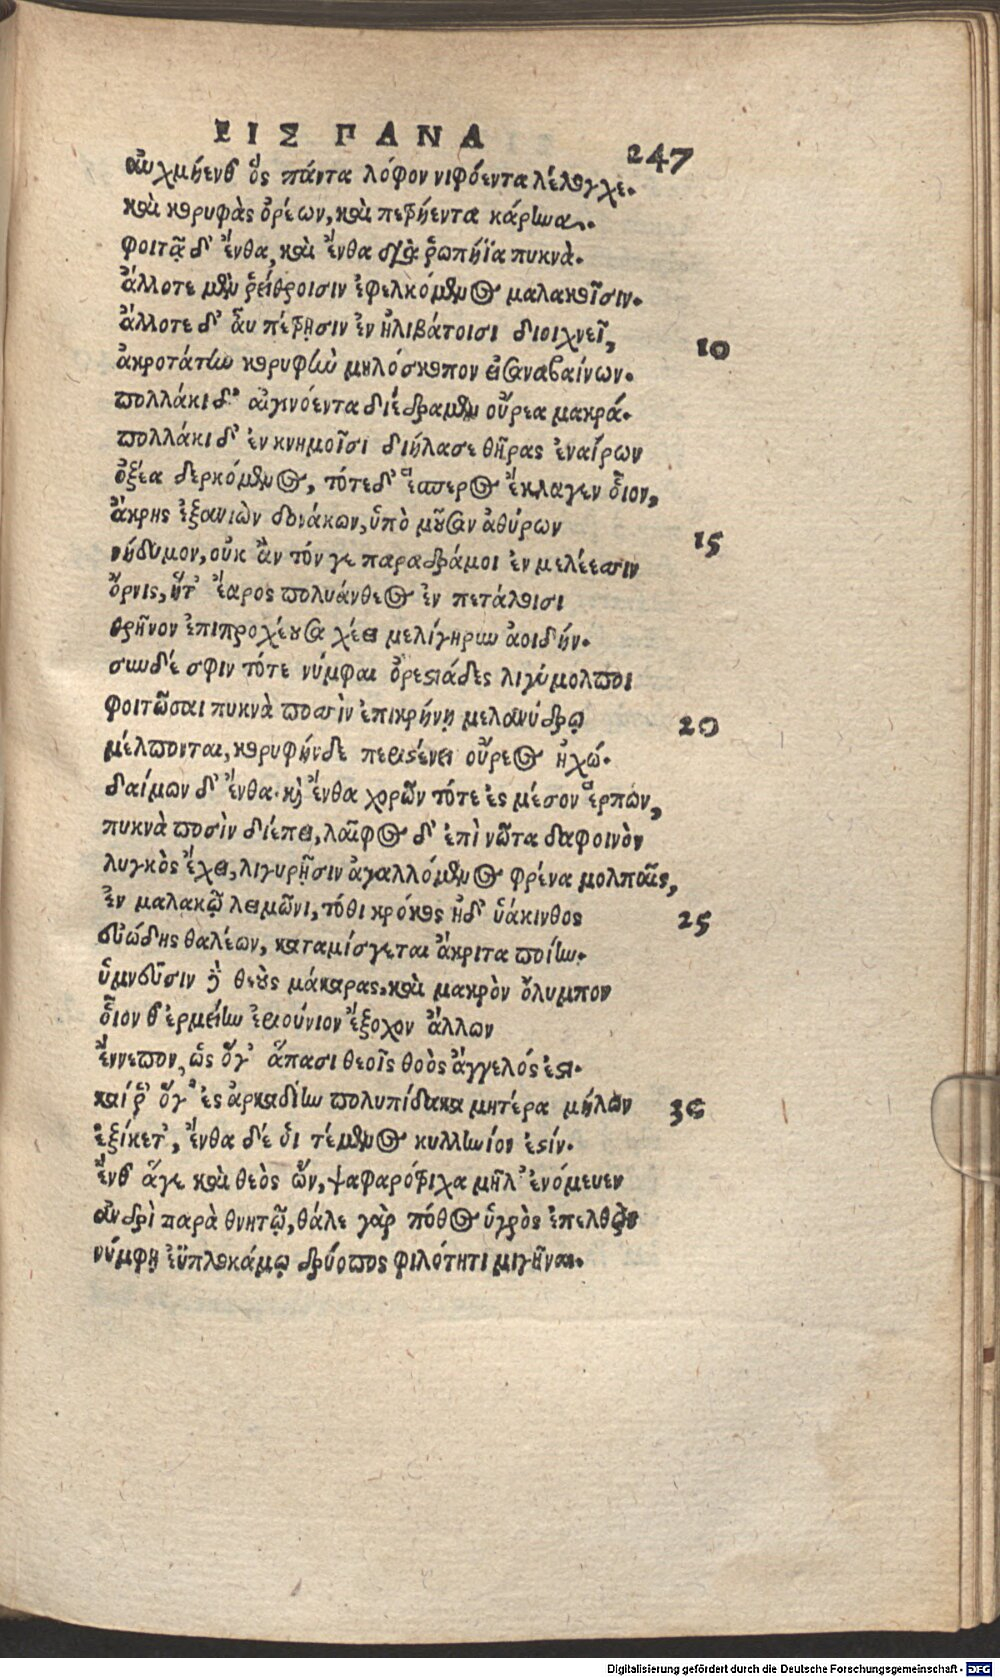 ΕΙΣ ΠΑΝΑ
247
αὐχμήενθ' ὃς πάντα λόφον νιφόεντα λέλογχε.
καὶ κορυφὰς ὀρέων, καὶ πετρήεντα κάρηνα.
φοιτᾷ δ' ἔνθα, καὶ ἔνθα διὰ ῥωπήϊα πυκνὰ.
ἄλλοτε μὲν ῥείθροισιν ἐφελκόμενος μαλακοῖσιν.
ἄλλοτε δ' αὖ πέτρῃσιν ἐν ἠλιβάτοισι διοιχνεῖ,
10
ἀκροτάτην κορυφὴν μηλόσκοπον εἰσαναβαίνων.
πολλάκι δ' αἰγινόεντα διέδραμεν οὔρεα μακρά.
πολλάκι δ' ἐν κνημοῖσι διήλασε θῆρας ἐναίρων
ὀξέα δερκόμενος, τότε δ' ἕσπερος ἔκλαγεν οἶον,
ἄκρης ἐξανιὼν δονάκων, ὑπὸ μοῦσαν ἀθύρων
15
νήδυμον, οὐκ ἂν τόν γε παραδράμοι ἐν μελέεσσιν
ὄρνις, ἥτ' ἔαρος πολυάνθεος ἐν πετάλοισι
θρῆνον ἐπιπροχέουσα χέει μελίγηρυν ἀοιδήν.
σὺν δέ σφιν τότε νύμφαι ὀρεστιάδες λιγύμολποι
φοιτῶσαι πυκνὰ ποσσὶν ἐπικρήνῃ μελανύδρῳ
20
μέλπονται, κορυφήνδε περιστένει οὔρεος ἠχώ.
δαίμων δ' ἔνθα καὶ ἔνθα χορῶν τότε ἐς μέσον ἕρπων,
πυκνὰ ποσὶν διέπει, λαῖφος δ' ἐπὶ νῶτα δαφοινὸν
λυγκὸς ἔχει, λιγυρῇσιν ἀγαλλόμενος φρένα μολπαῖς,
ἐν μαλακῷ λειμῶνι, τόθι κρόκος ἠδ' ὑάκινθος
25
εὐώδης θαλέων, καταμίσγεται ἄκριτα ποίην.
ὑμνεῦσιν δὲ θεοὺς μάκαρας, καὶ μακρὸν ὄλυμπον
οἷον θ' ἑρμείην ἐριούνιον ἔξοχον ἄλλων
ἔννεπον, ὡς ὅγ' ἅπασι θεοῖς θοὸς ἄγγελός ἐστι.
καί ῥ' ὅγ' ἐς ἀρκαδίην πολυπίδακα μητέρα μήλων
30
ἐξίκετ', ἔνθα δέ οἱ τέμενος κυλλήνιον ἐστίν.
ἔνθ' ἅγε καὶ θεὸς ὢν, ψαφαρότριχα μῆλ' ἐνόμευεν
ἀνδρὶ παρὰ θνητῷ, θάλε γὰρ πόθος ὑγρὸς ἐπελθὼν
νύμφῃ ἐϋπλοκάμῳ δρύοπος φιλότητι μιγῆναι.
Digitalisierung gefördert durch die Deutsche Forschungsgemeinschaft - DFG